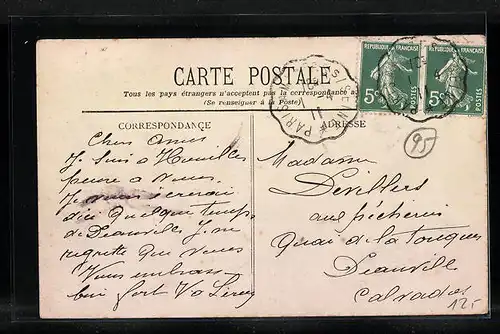 CARTE POSTALE
Tous les pays étrangers n'acceptent pas la correspondance a
(Se renseigner à la Poste)
CORRESPONDANCE
ADRESSE
REPUBLIQUE FRANÇAISE
5c
REPUBLIQUE FRANÇAISE
5c
PARIS
95
Chers Amis
Je suis à Houilles
pense à vous
Je vous
d'ici quelque temps
de Deauville Je
regrette que vous
Vous
bien fort
Madame
Devillers
aux pêcheries
Quai de la touques
Deauville
Calvados
125